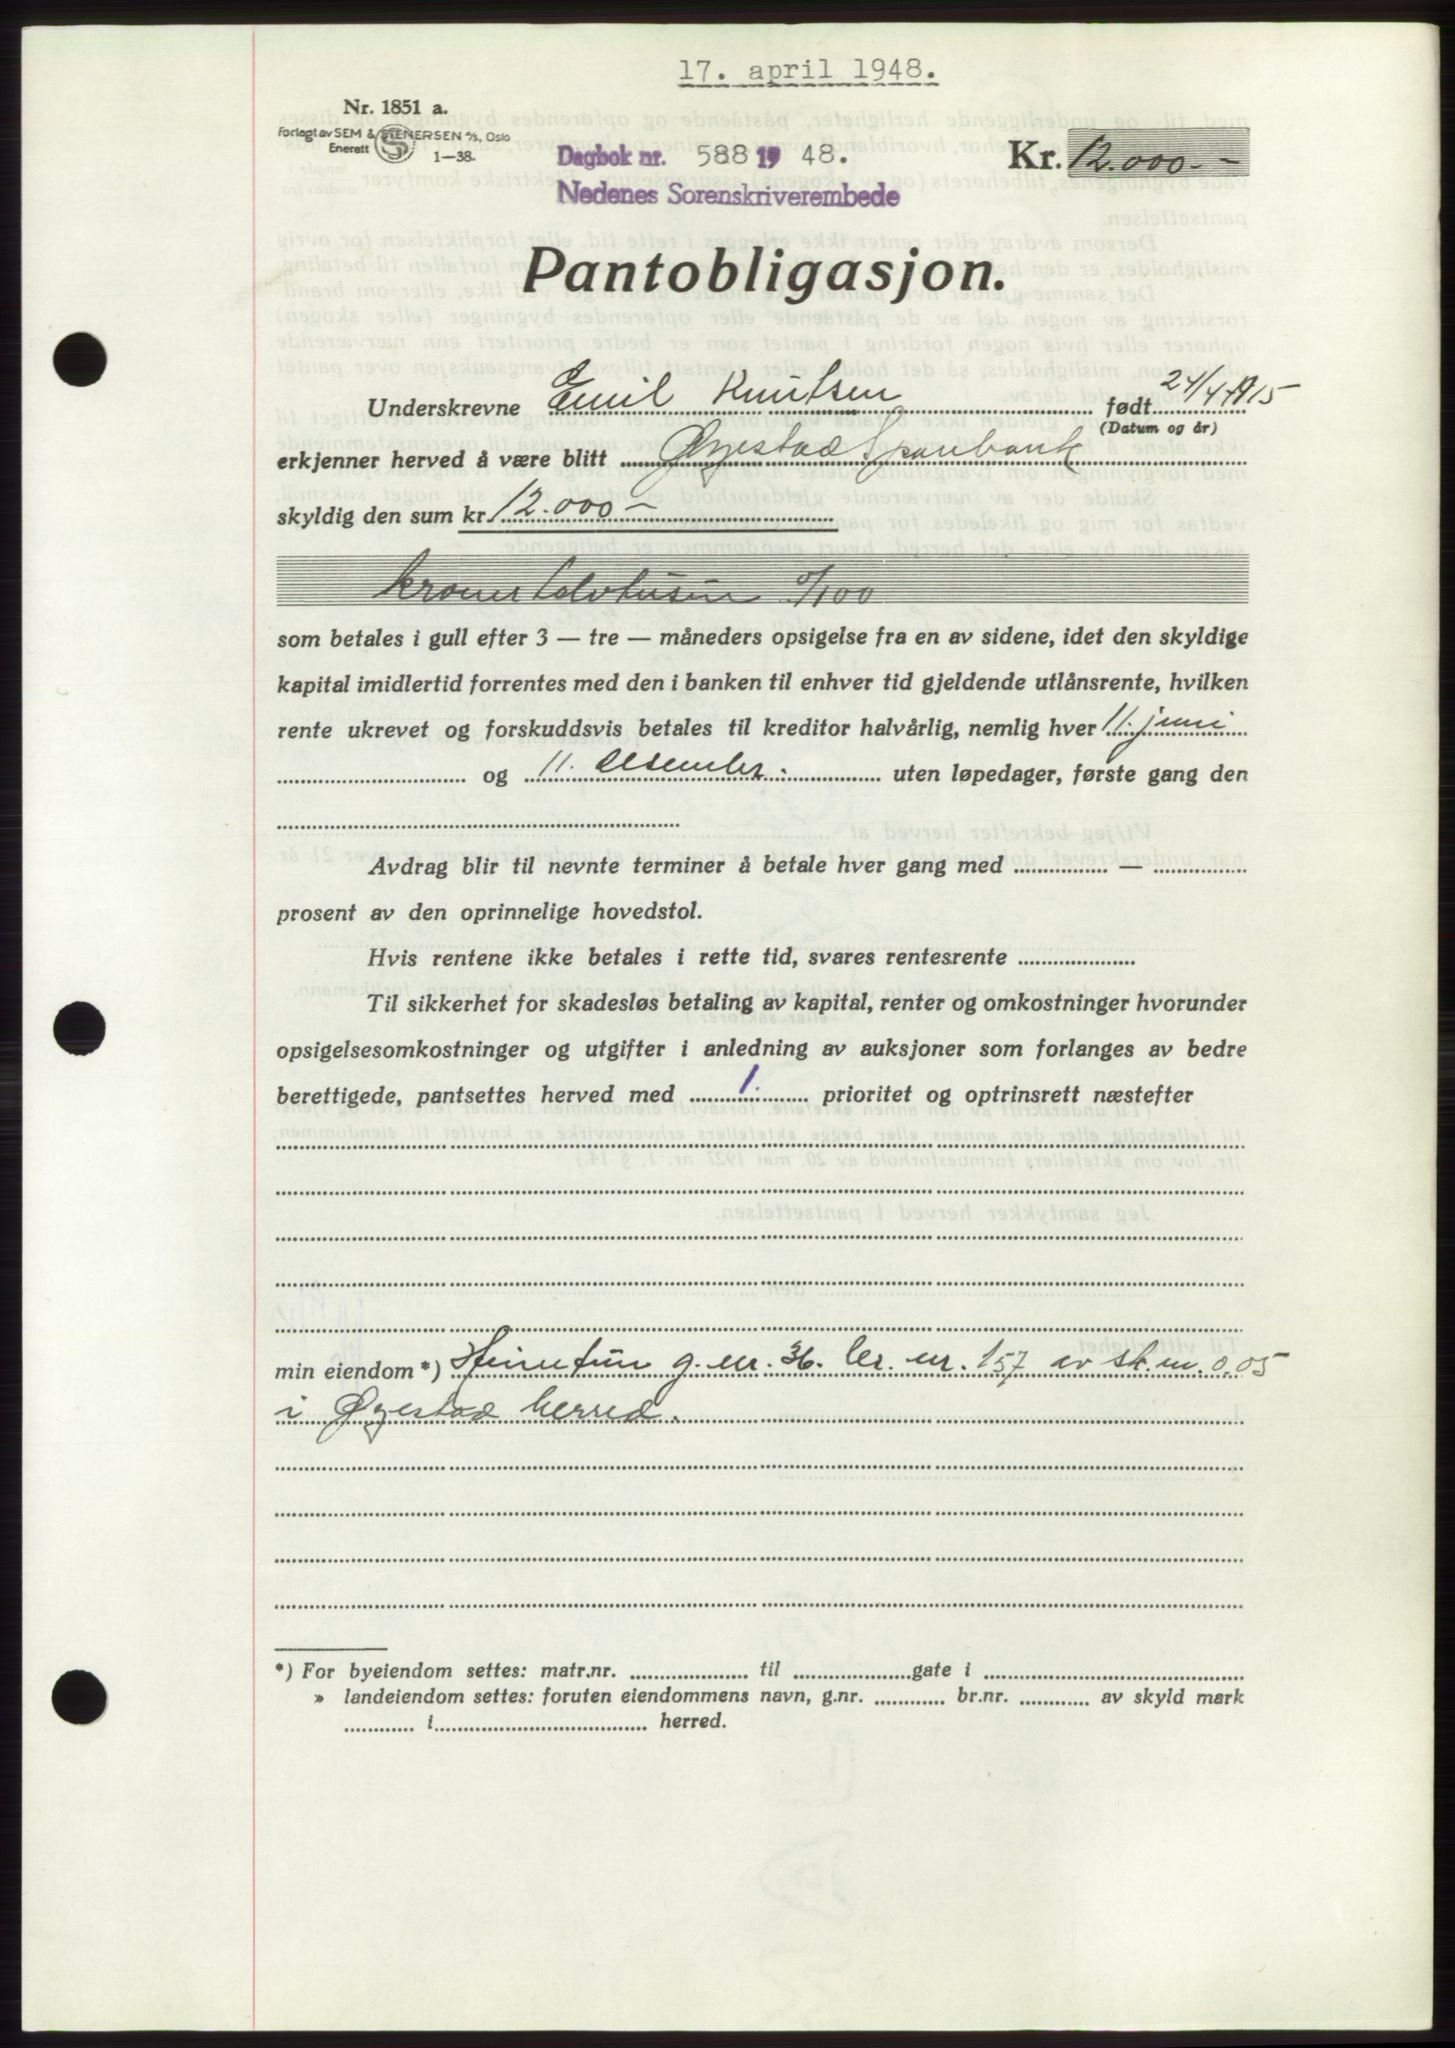 17. april 1948.
Nr. 1851 a.
Forlagt av SEM & STENERSEN A/S, Oslo
Enerett
1-38.
Dagbok nr. 588 19 48.
Nedenes Sorenskriverembede
Kr. 12.000.-
Pantobligasjon.
Underskrevne Emil Knutsen født 24/4 1915
(Datum og år)
erkjenner herved å være blitt Øyestad Sparebank
skyldig den sum kr. 12.000 -
kroner tolvtusen 0/100
som betales i gull efter 3 — tre — måneders opsigelse fra en av sidene, idet den skyldige
kapital imidlertid forrentes med den i banken til enhver tid gjeldende utlånsrente, hvilken
rente ukrevet og forskuddsvis betales til kreditor halvårlig, nemlig hver 11. juni
og 11. desember. uten løpedager, første gang den
Avdrag blir til nevnte terminer å betale hver gang med —
prosent av den oprinnelige hovedstol.
Hvis rentene ikke betales i rette tid, svares rentesrente
Til sikkerhet for skadesløs betaling av kapital, renter og omkostninger hvorunder
opsigelsesomkostninger og utgifter i anledning av auksjoner som forlanges av bedre
berettigede, pantsettes herved med 1. prioritet og optrinsrett næstefter
min eiendom *) Heimtun g. nr. 36. br. nr. 157 av sk. m. 0,05
i Øyestad herred.
*) For byeiendom settes: matr.nr. til gate i
» landeiendom settes: foruten eiendommens navn, g.nr. br.nr. av skyld mark
i herred.